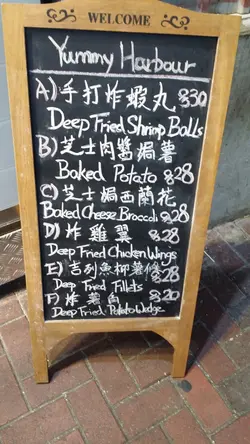 WELCOME
Yummy Harbour
A) 手打炸蝦丸 $30
Deep Fried Shrimp Balls
B) 芝士肉醬焗薯
Baked Potato $28
C) 芝士焗西蘭花
Baked Cheese Broccoli $28
D) 炸雞翼 $28
Deep Fried Chicken Wings
E) 吉列魚柳薯條
$28
Deep Fried Fillets
F) 炸薯角 $20
Deep Fried Potato Wedge